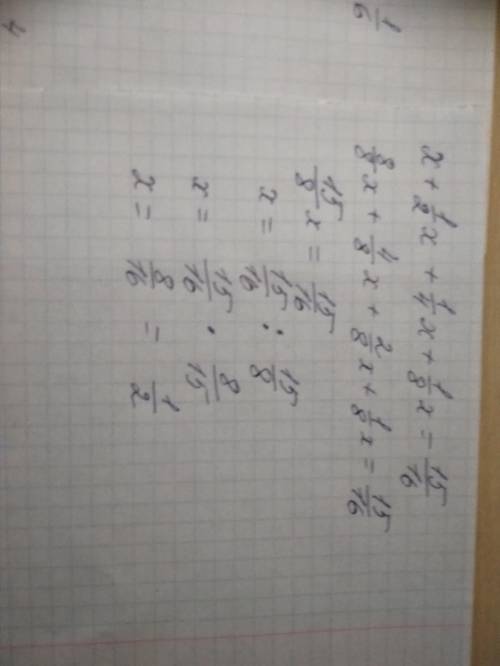 1/6
x + 1/2 x + 1/4 x + 1/8 x = 15/16
8/8 x + 4/8 x + 2/8 x + 1/8 x = 15/16
15/8 x = 15/16
x = 15/16 : 15/8
x = 15/16 · 8/15
x = 8/16 = 1/2
4